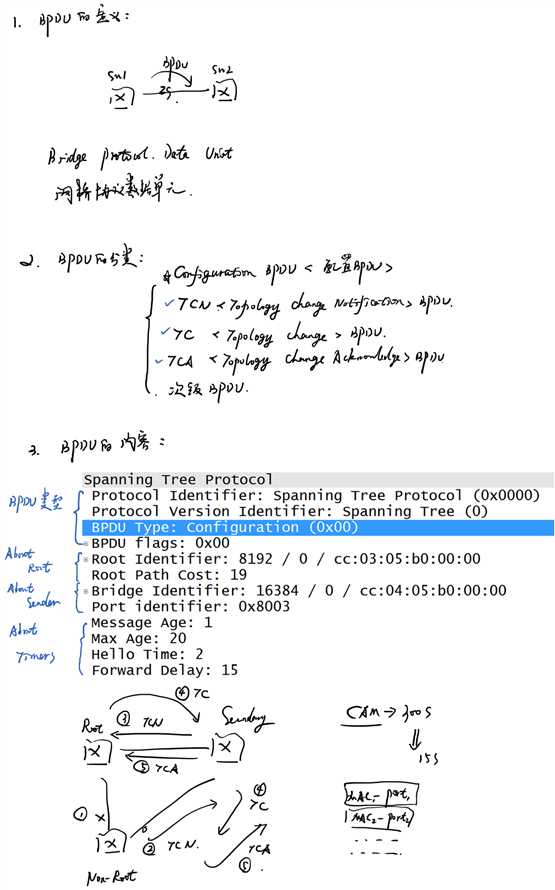 1. BPDU的定义:
BPDU
SW1 SW2
2s.
Bridge Protocol. Data Unit
网桥协议数据单元.
2. BPDU的分类:
Configuration BPDU <配置BPDU>
TCN <Topology change Notification> BPDU.
TC <Topology change> BPDU.
TCA <Topology change Acknowledge> BPDU
次级BPDU.
3. BPDU的内容:
Spanning Tree Protocol
BPDU类型
Protocol Identifier: Spanning Tree Protocol (0x0000)
Protocol Version Identifier: Spanning Tree (0)
BPDU Type: Configuration (0x00)
BPDU flags: 0x00
About Root
Root Identifier: 8192 / 0 / cc:03:05:b0:00:00
Root Path Cost: 19
About Sender
Bridge Identifier: 16384 / 0 / cc:04:05:b0:00:00
Port identifier: 0x8003
About Timers
Message Age: 1
Max Age: 20
Hello Time: 2
Forward Delay: 15
④ TC
Root ③ TCN Secondary
⑤ TCA
CAM → 300s
15s
① X
② TCN.
④ TC
TCA
⑤.
Non-Root
MAC1 - port1
MAC2 - port2